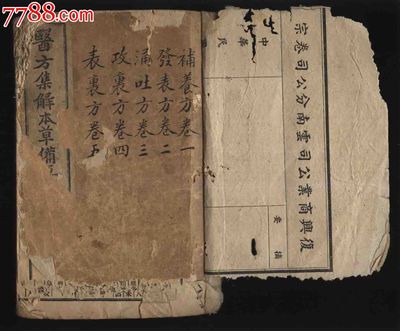 7788.com
補養方卷一
發表方卷二
涌吐方卷三
攻裏方卷四
表裏方卷五
醫方集解本草備
復興商業公司雲南分公司卷宗
中華民
摘要